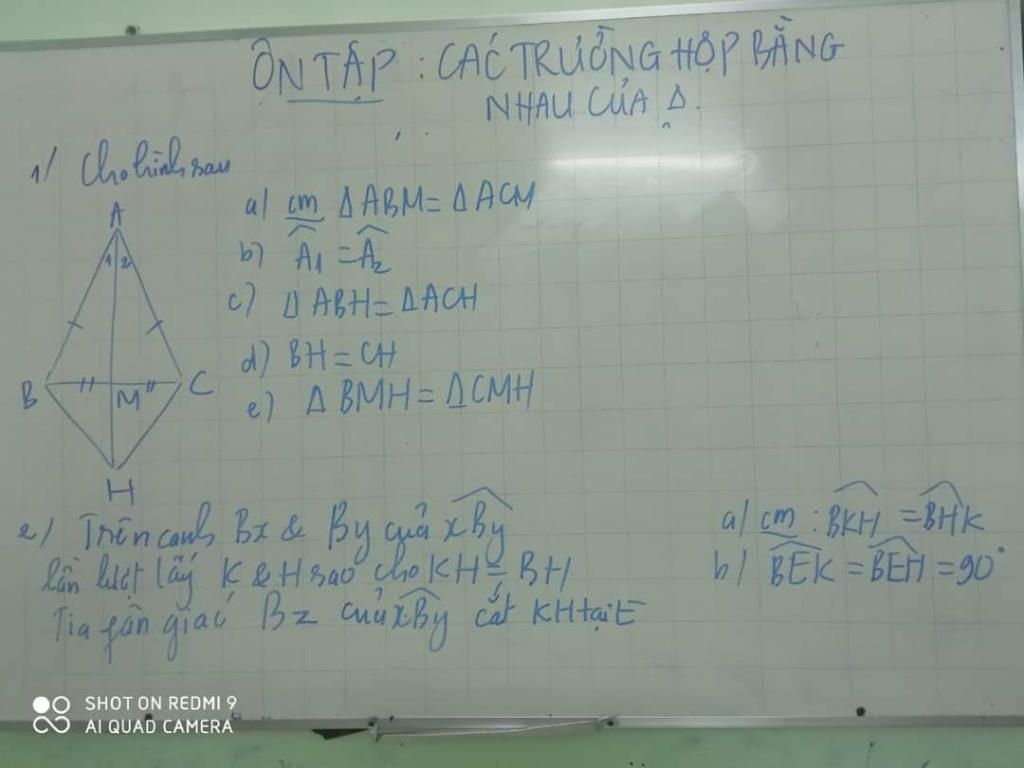 ÔN TẬP : CÁC TRƯỜNG HỢP BẰNG
NHAU CỦA Δ.
1/ Cho hình sau
A
1 2
B
M
C
H
a) cm ΔABM = ΔACM
b) Â1 = Â2
c) ΔABH = ΔACH
d) BH = CH
e) ΔBMH = ΔCMH
2/ Trên cạnh Bx & By của xBy
lần lượt lấy K & H sao cho KH = BH
Tia phân giác Bz của xBy cắt KH tại E
a/ cm : BKH = BHK
b/ BEK = BEH = 90°
SHOT ON REDMI 9
AI QUAD CAMERA